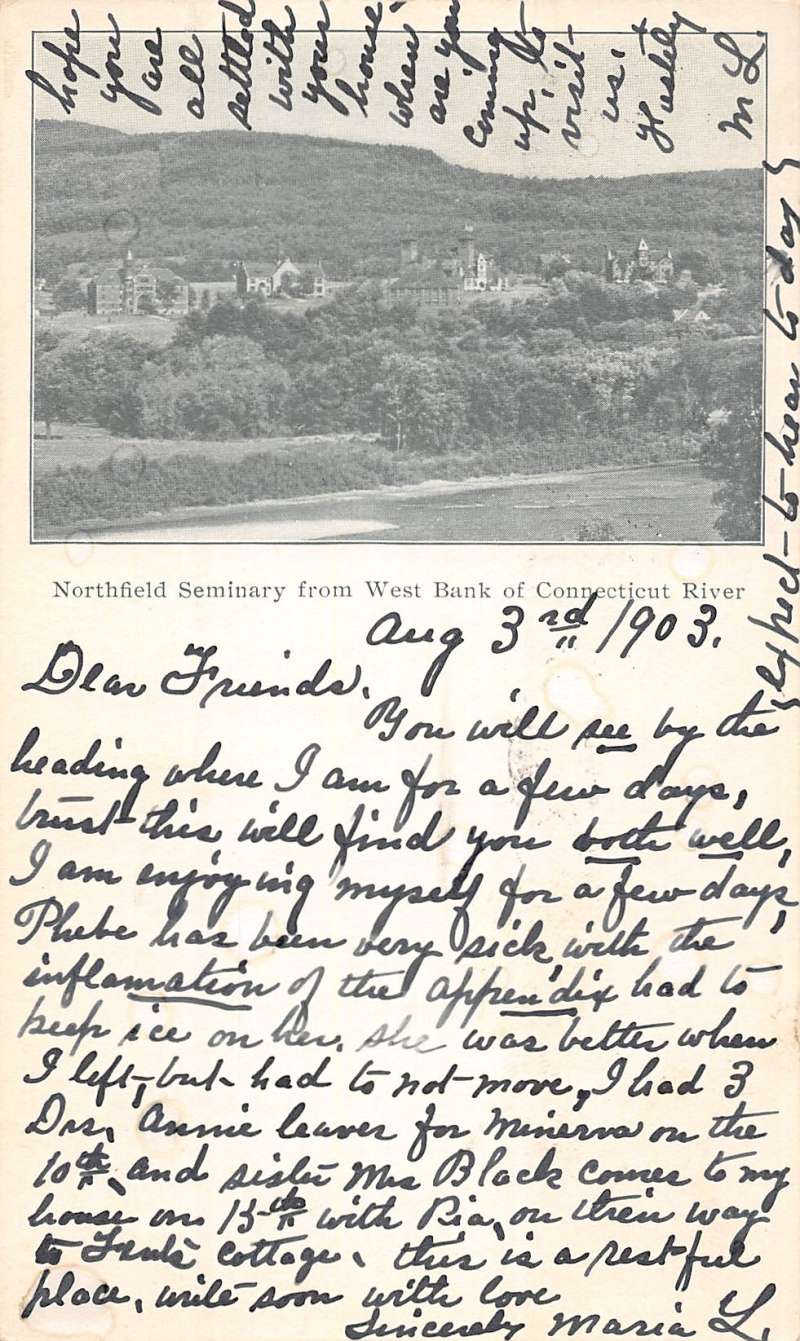 Northfield Seminary from West Bank of Connecticut River
Aug 3rd 1903.
Dear Friends.
You will see by the
heading where I am for a few days,
trust this will find you both well,
I am enjoying myself for a few days,
Phebe has been very sick with the
inflamation of the appendix had to
keep ice on her. she was better when
I left, but had to not move, I had 3
Drs, Annie leaves for Minerva on the
10th, and sister Mrs Black comes to my
house on 15th with Ria, on their way
to cottage, this is a restful
place, write soon with love
Sincerely Maria L.
expect to hear to day
hope
you
are
all
settled
with
your
house,
when
are you
coming
up, to
visit
us.
Hastily
M L.